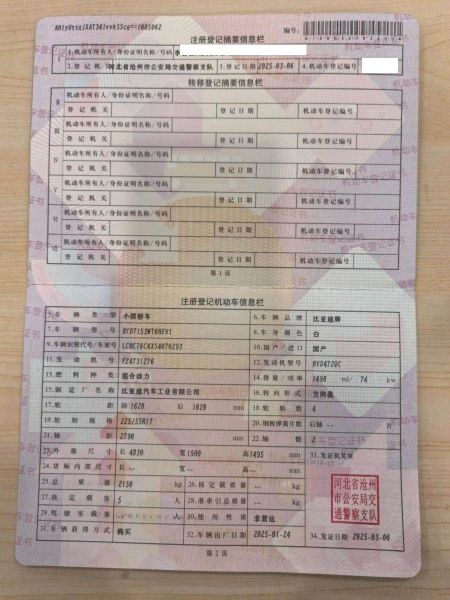 注册登记摘要信息栏
编号:
1.机动车所有人/身份证明名称/号码
2.登记机关 河北省沧州市公安局交通警察支队 3.登记日期 2025-03-06 4.机动车登记编号
转移登记摘要信息栏
Ⅱ 机动车所有人/身份证明名称/号码
登记机关 登记日期 机动车登记编号
Ⅲ 机动车所有人/身份证明名称/号码
登记机关 登记日期 机动车登记编号
Ⅳ 机动车所有人/身份证明名称/号码
登记机关 登记日期 机动车登记编号
Ⅴ 机动车所有人/身份证明名称/号码
登记机关 登记日期 机动车登记编号
Ⅵ 机动车所有人/身份证明名称/号码
登记机关 登记日期 机动车登记编号
Ⅶ 机动车所有人/身份证明名称/号码
登记机关 登记日期 机动车登记编号
第1页
注册登记机动车信息栏
5.车辆类型 小型轿车 6.车辆品牌 比亚迪牌
7.车辆型号 8.车身颜色 白
9.车辆识别代号/车架号 10.国产/进口 国产
11.发动机号 12.发动机型号 BYD472QC
13.燃料种类 混合动力 14.排量/功率 1498 ml/ 74 kw
15.制造厂名称 比亚迪汽车工业有限公司 16.转向形式 方向盘
17.轮距 前 1620 后 1620 mm 18.轮胎数 4
19.轮胎规格 225/55R17 20.钢板弹簧片数 后轴 --
21.轴距 2790 mm 22.轴数 2
23.外廓尺寸 长 4830 宽 1900 高 1495 mm 33.发证机关章
24.货厢内部尺寸 长 -- 宽 -- 高 -- mm
25.总质量 2150 kg 26.核定载质量 -- kg
27.核定载客 5 人 28.准牵引总质量 -- kg
29.驾驶室载客 -- 人 30.使用性质 非营运
河北省沧州市公安局交通警察支队
31.车辆获得方式 购买 32.车辆出厂日期 2025-01-24 34.发证日期 2025-03-06
第2页